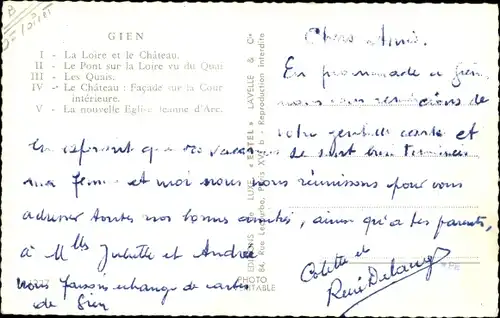 GIEN
I - La Loire et le Château.
II - Le Pont sur la Loire vu du Quai
III - Les Quais.
IV - Le Château : Façade sur la Cour
intérieure.
V - La nouvelle Eglise Jeanne d'Arc.
Chers Amis.
En promenade à Gien
nous vous remercions de
votre gentille carte et
En espérant que vos vacances se sont bien terminées
ma femme et moi nous nous réunissons pour vous
adresser toutes nos bonnes amitiés, ainsi qu'à tes parents,
à Mlles Juliette et Andrée
nous faisons échange de cartes
de Gien
Colette et
René
EDITIONS DE LUXE « ESTEL » LAVELLE & Cie
84, Rue Lecourbe, Paris XVe - Reproduction interdite
PHOTO
VERITABLE